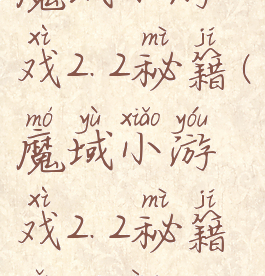 xì mì jí
戏2.2秘籍(
mó yù xiǎo yóu
魔域小游
xì mì jí
戏2.2秘籍